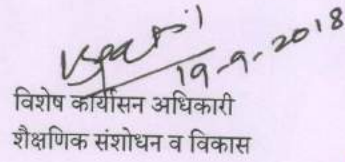 19-9-2018
विशेष कार्यासन अधिकारी
शैक्षणिक संशोधन व विकास